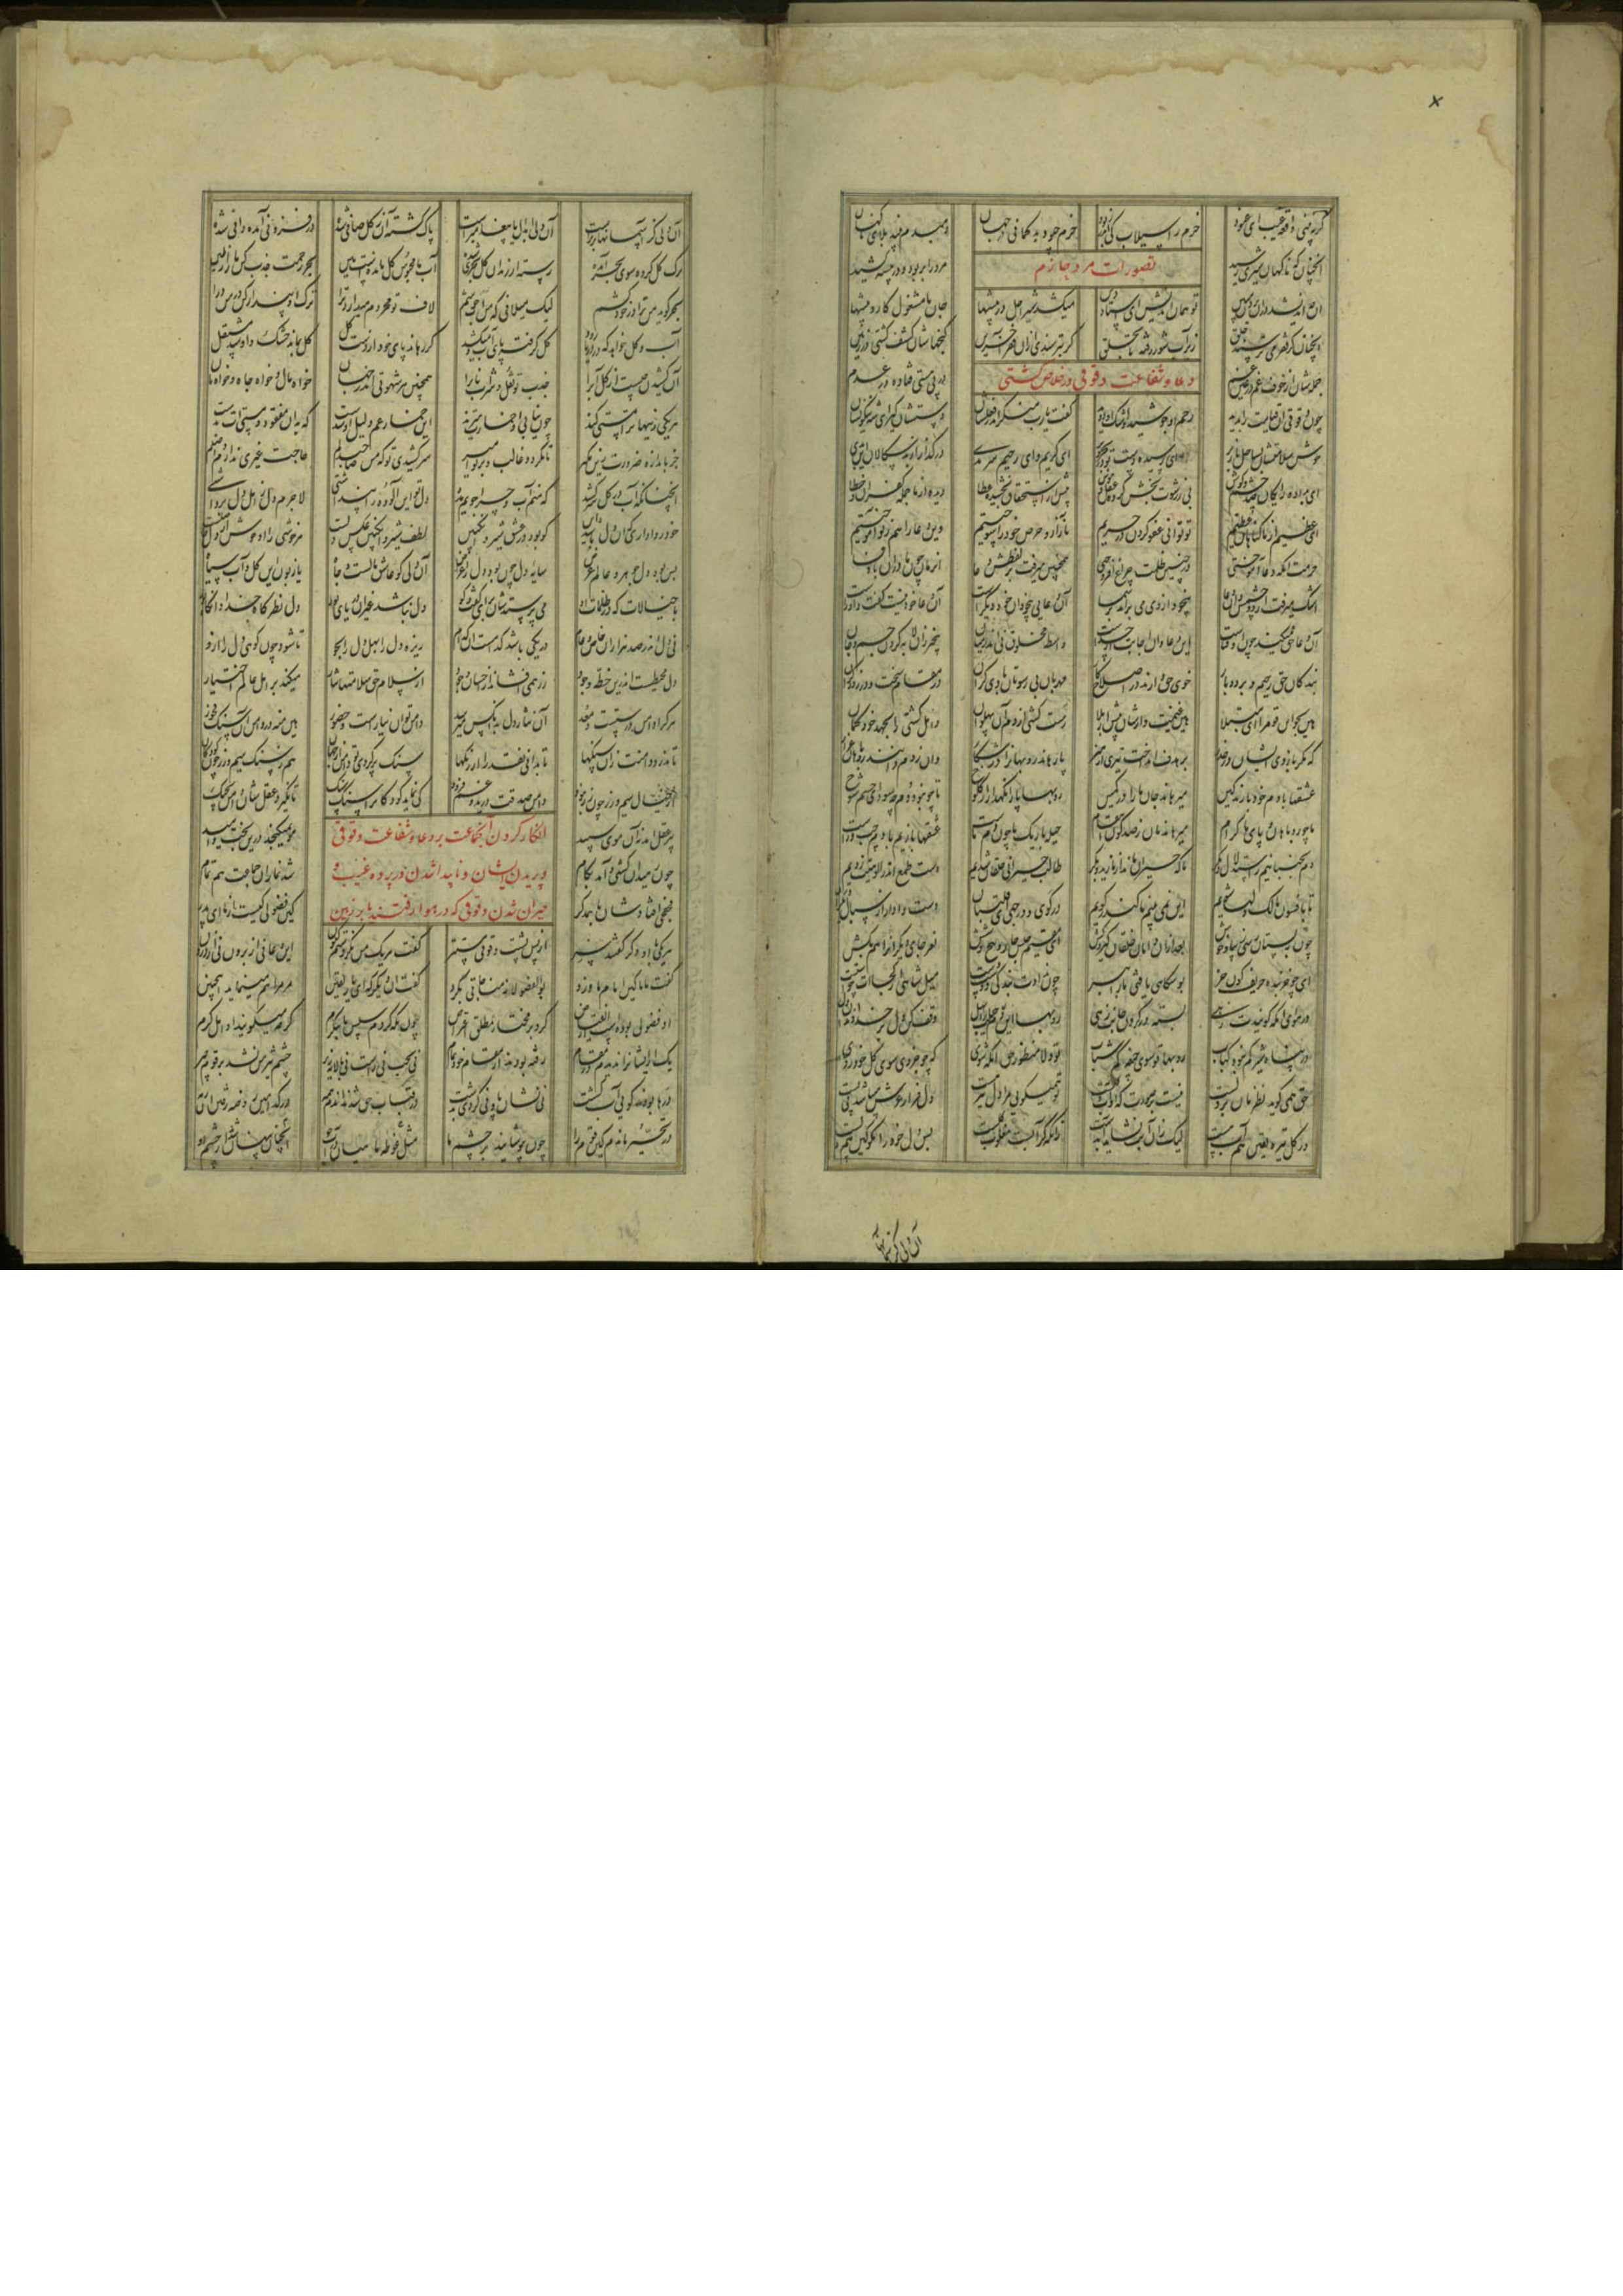 کر نه بینی واقعه غیب ای عنود حزم را سیلاب کی اندر ربود حزم چه بود بدکمانی در جهان دم بدم بیند بلای ناکهان
تصورات مرد حازم
آنچنانکه ناکهان شیری رسید مرد را بربود و در بیشه کشید
او چه اندیشد در آن بردن ببین تو همان اندیش ای استاد دین میکشد شیر اجل در بیشها جان ما مشغول کار و پیشها
آنچنان کز فقر می ترسند خلق زیر آب شور رفته تا بحلق کر بترسندی از آن فقر آفرین کنجهاشان کشف کشتی در زمین
دعا و شفاعت دقوقی در خلاص کشتی
جمله شان از خوف غم در عین غم در پی هستی فتاده در عدم
چون دقوقی آن قیامت را بدید رحم او جوشید و اشک او دوید کفت یارب منکر اندر فعلشان دستشان کیر ای شه نیکو نشان
خوش سلامتشان بساحل باز بر ای رسیده دست تو در بحر و بر ای کریم و ای رحیم سرمدی درکذار از بدسکالان این بدی
ای بداده رایکان صد چشم و کوش بی ز رشوت بخش کرده عقل و هوش پیش ز استحقاق بخشیده عطا دیده از ما جمله کفران و خطا
ای عظیم از ما کناهان عظیم تو توانی عفو کردن در حریم ما ز آز و حرص خود را سوختیم وین دعا را هم ز تو آموختیم
حرمت آنکه دعا آموختی در چنین ظلمت چراغ افروختی همچنین میرفت بر لفظش دعا آن زمان چون مادران با وفا
اشک میرفت از دو چشمش وان دعا بیخود از وی می برآمد بر سما آن دعای بیخودان خود دیکرست آن دعا زو نیست کفت داورست
آن دعا حق میکند چون او فناست این دعا وان اجابت از خداست واسطه مخلوق نی اندر میان بیخبر زان لابه کردن جسم و جان
بندکان حق رحیم و بردبار خوی حق دارند در اصلاح کار مهربان بی رشوتان یاری کران در مقام سخت و در روز کران
هین بجو این قوم را ای مبتلا هین غنیمت دارشان پیش از بلا رست کشتی از دم آن پهلوان واهل کشتی را بجهد خود کمان
که مکر بازوی ایشان در حذر بر هدف انداخت تیری از هنر پا رهاند روبهانرا در شکار وان ز دم دانند روباهان
عشقها با دم خود بازند کین میرهاند جان ما را در کمین روبها پا را نکهدار از کلوخ پا چو نبود دم چه سود ای چشم شوخ
ما چو روباهان و پای ما کرام میرهاندمان ز صدکون انتقام حیله باریک ما چون دم ماست عشقها بازیم با دم چپ و راست
دم بجنبانیم ز استدلال و مکر تا که حیران ماند از ما زید و بکر طالب حیرانی خلقان شدیم دست طمع اندر الوهیت زدیم
تا بافسون مالک دلها شویم این نمی بینیم ما کاندر کویم در کوی و در چهی ای قلتبان دست وادار از سبال دیکران
چون ببستانی رسی زیبا و خوش بعد از آن دامان خلقان کیر و کش ای مقیم حبس چار و پنج و شش نغز جایی دیکرانرا هم بکش
ای چو خربنده حریف کون خر بوسه کاهی یافتی ما را ببر چون ندادت بندکی دوست دست میل شاهی از کجاات
در هوای آنکه کویندت زهی بسته در کردن جانت زهی روبها این دم حیلت را بهل وقف کن دل بر خداوندان دل
در پناه شیر کم ناید کباب روبها تو سوی جیفه کم شتاب تو دلا منظور حق آنکه شوی که چو جزوی سوی کل خود روی
حق همی کوید نظرمان بر دلست نیست بر صورت که آن آب و کلست تو همیکویی مرا دل نیز هست دل فراز عرش باشد نی به پست
در کل تیره یقین هم آب هست لیک زان آبت نشاید آب دست زانکه کر آبست مغلوب کلست پس دل خود را مکو کین هم دلست
آن دلی کز آسمانها
آن دلی کز آسمانها برترست آن دل ابدال یا پیغمبرست پاک کشته آن ز کل صافی شده در فزونی آمده وافی شده
ترک کل کرده سوی بحر آمده رسته از زندان کل بحری شده آب ما محبوس کل ماندست هین بحر رحمت جذب کن ما را ز طین
بحر کوید من ترا در خود کشم لیک میلافی که من آب خوشم لاف تو محروم میدارد ترا ترک آن پنداشت کن در من درا
آب کل خواهد که در دریا رود کل کرفته پای آب و میکشد کر رهاند پای خود از دست کل کل بماند خشک و او شد مستقل
آن کشیدن چیست از کل آب را جذب تو نقل و شراب ناب را همچنین هر شهوتی اندر جهان خواه مال و خواه جاه و خواه نان
هر یکی زینها ترا مستی کند چون نیابی آن خمارت میزند این خمار غم دلیل آن شدست که بدان مفقود مستیت بدست
جز باندازه ضرورت زین مکیر تا نکردد غالب و بر تو امیر سر کشیدی تو که من صاحبدلم حاجت غیری ندارم واصلم
آنچنانکه آب در کل سر کشد که منم آب و چرا جویم مدد دل تو این آلوده را پنداشتی لاجرم دل ز اهل دل برداشتی
خود روا داری که آن دل باشد این کو بود در عشق شیر و انکبین لطف شیر و انکبین عکس دلست هر خوشی را آن خوش از دل حاصلست
پس بود دل جوهر و عالم عرض سایه دل چون بود دل را غرض آن دلی کو عاشق مالست و جاه یا زبون این کل و آب سیاه
یا خیالاتی که در ظلمات او می پرستدشان برای کفت و کو دل نباشد غیر آن دریای نور دل نظرکاه خدا وانکاه کور
نی دل اندر صد هزاران خاص و عام در یکی باشد کدامست آن کدام ریزه دل را بهل دل را بجو تا شود آن ریزه چون کوهی ازو
دل محیطست اندرین خطه وجود زر همی افشاند از احسان وجود از سلام حق سلامتها نثار میکند بر اهل عالم اختیار
هر کرا دامن درستست و معد آن نثار دل بدانکس میرسد دامن تو آن نیازست و حضور هین منه در دامن آن سنک فجور
تا ندرد دامنت زان سنکها تا بدانی نقد را از رنکها سنک پر کردی تو دامن از جهان هم ز سنک سیم و زر چون کودکان
از خیال سیم و زر چون زر نبود دامن صدقت درید و غم فزود کی نماید کودکانرا سنک سنک تا نکیرد عقل دامنشان بچنک
پیر عقل آمد نه آن موی سپید مو نمیکنجد درین بخت و امید
انکار کردن آن جماعت بر دعا و شفاعت دقوقی
و پریدن ایشان و ناپیدا شدن در پرده غیب و
حیران شدن دقوقی که در هوا رفتند یا بر زمین
چون رهید آن کشتی و آمد بکام شد نماز آن جماعت هم تمام
فجفجی افتادشان با همدکر کین فضولی کیست از ما ای پدر
هر یکی با آن دکر کفتند سر از پس پشت دقوقی مستتر کفت هر یک من نکردستم کنون این دعا نی از برون نی از درون
کفت مانا کین امام ما ز درد بوالفضولانه مناجاتی بکرد کفت آن دیکر که ای یار یقین مر مرا هم مینماید همچنین
او فضولی بوده است از انقباض کرد بر مختار مطلق اعتراض چون نکه کردم سپس تا بنکرم که چه میکویند آن اهل کرم
یک ازیشانرا ندیدم در مقام رفته بودند از مقام خود تمام نی چپ نی راست نی بالا نه زیر چشم تیز من نشد بر قوم چیر
درها بودند کویی آب کشت نی نشان پا و نی کردی بدشت در قباب حق شدند آن دم همه در کدامین روضه رفتند آن رمه
در تحیر ماندم کین قوم را چون بپوشانید حق بر چشم ما